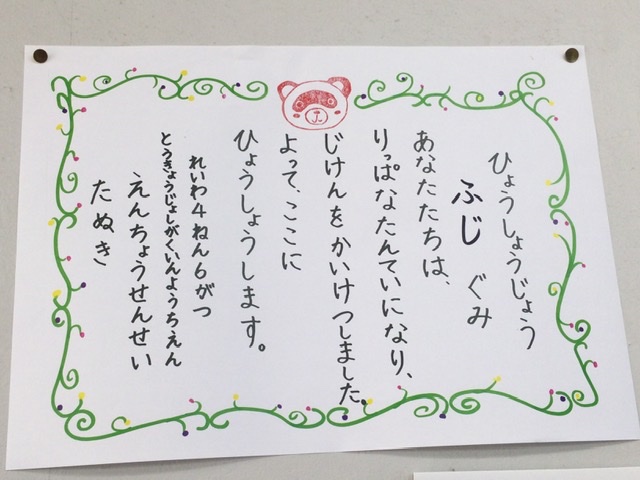 ひょうしょうじょう
ふじ ぐみ
あなたたちは、
りっぱなたんていになり、
じけんをかいけつしました。
よって、ここに
ひょうしょうします。
れいわ4ねん6がつ
とうきょうじょしがくいんようちえん
えんちょうせんせい
たぬき